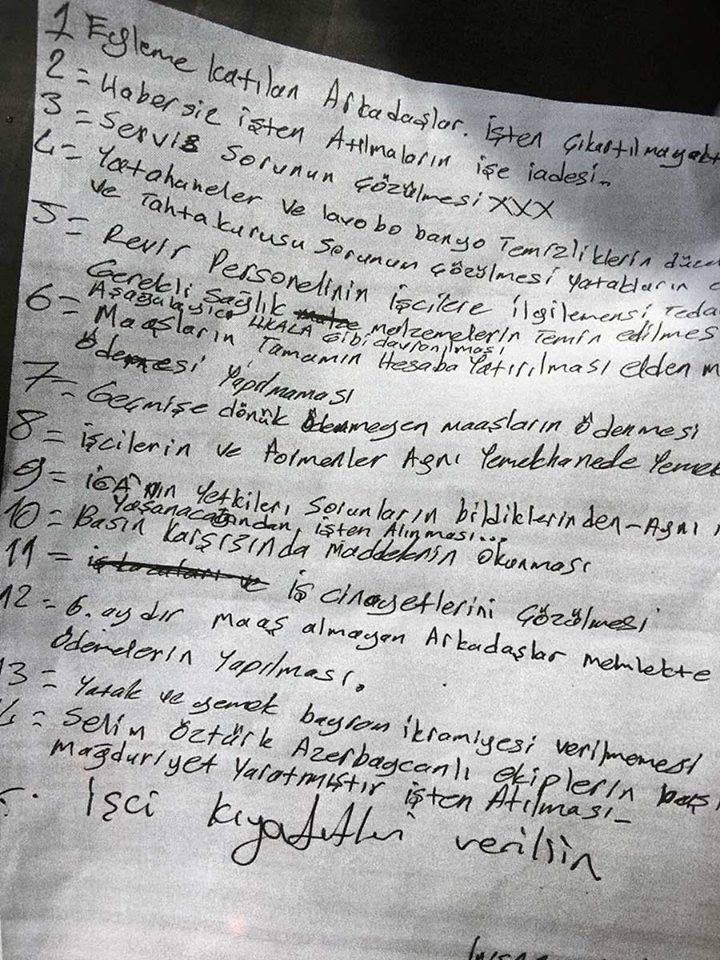 1 Eyleme katılan Arkadaşlar. İşten Çıkartılmayak
2 = Habersiz işten Atılmaların işe iadesi.
3 = Servis Sorunun Çözülmesi XXX
4 = Yatahaneler ve lavobo banyo Temizliklerin düze
ve Tahtakurusu Sorunun Çözülmesi yatakların
5 = Revir Personelinin işcilere ilgilemensi Teda
Gerekli Sağlık melzemelerin Temin edilmes
Aşağılayıcı HKALA Gibi davranılması
6 = Maaşların Tamamın Hesaba Yatırılması elden m
Ödemesi Yapılmaması
7 = Geçmişe dönük Ödenmeyen maaşların Ödenmesi
8 = işcilerin ve Formenler Aynı Yemekhanede Yemek
9 = iGA'nın Yetkileri Sorunların bildiklerinden - Aynı
Yaşanacağından işten Alınması...
10 = Basın Karşısında maddelenin okunması
11 = iş cinayetlerini Çözülmesi
12 = 6. aydır maaş almayan Arkadaşlar memlekte
Ödemelerin Yapılması.
13 = Yatak ve yemek bayram ikramiyesi verilmemesi
4 = Selim Öztürk Azerbaycanlı ekiplerin
Mağduriyet Yaratmıştır işten Atılması -
İşci kıyafetleri verilsin